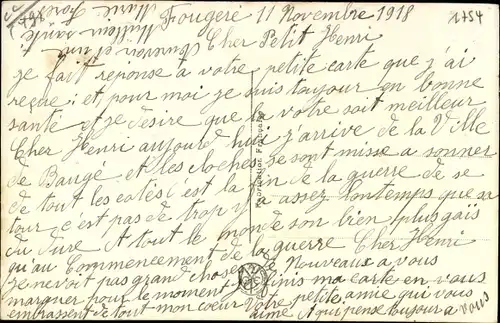 Fougeré 11 Novembre 1918
1754
Cher Petit Henri
je fait reponse a votre petite carte que j'ai
reçue ; et pour moi je suis toujour en bonne
santé et je désire que la votre soit meilleur
Cher Henri aujourd hui j'arrive de la Ville
de Baugé et les cloches se sont misse a sonner
de tout les cotés c'est la fin de la guerre de se
jour c'est pas de trop y a assez lontemps que sa
du dure A tout le monde son bien plus gais
qu'au Commencement de la guerre Cher Henri
je ne voit pas grand chose de Nouveaux a vous
marquer pour le moment je finis ma carte en vous
embrassent de tout mon cœur Votre petite amie qui vous
aime A qui pense toujour a vous
Au revoir et une
Meilleure santé
Marie
Fabrication Française